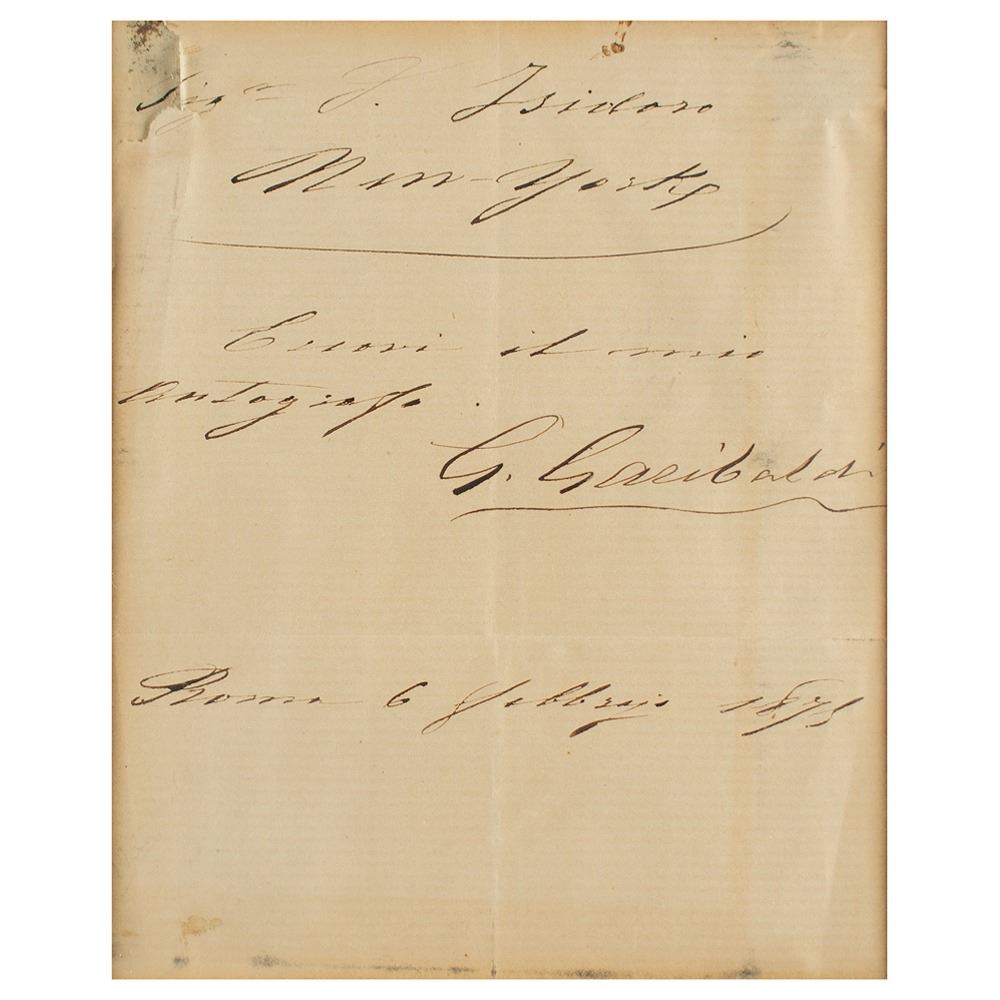 Sigr J. Isidoro
New-York
Eccovi il mio
autografo.
G. Garibaldi
Roma 6 febbrajo 1875